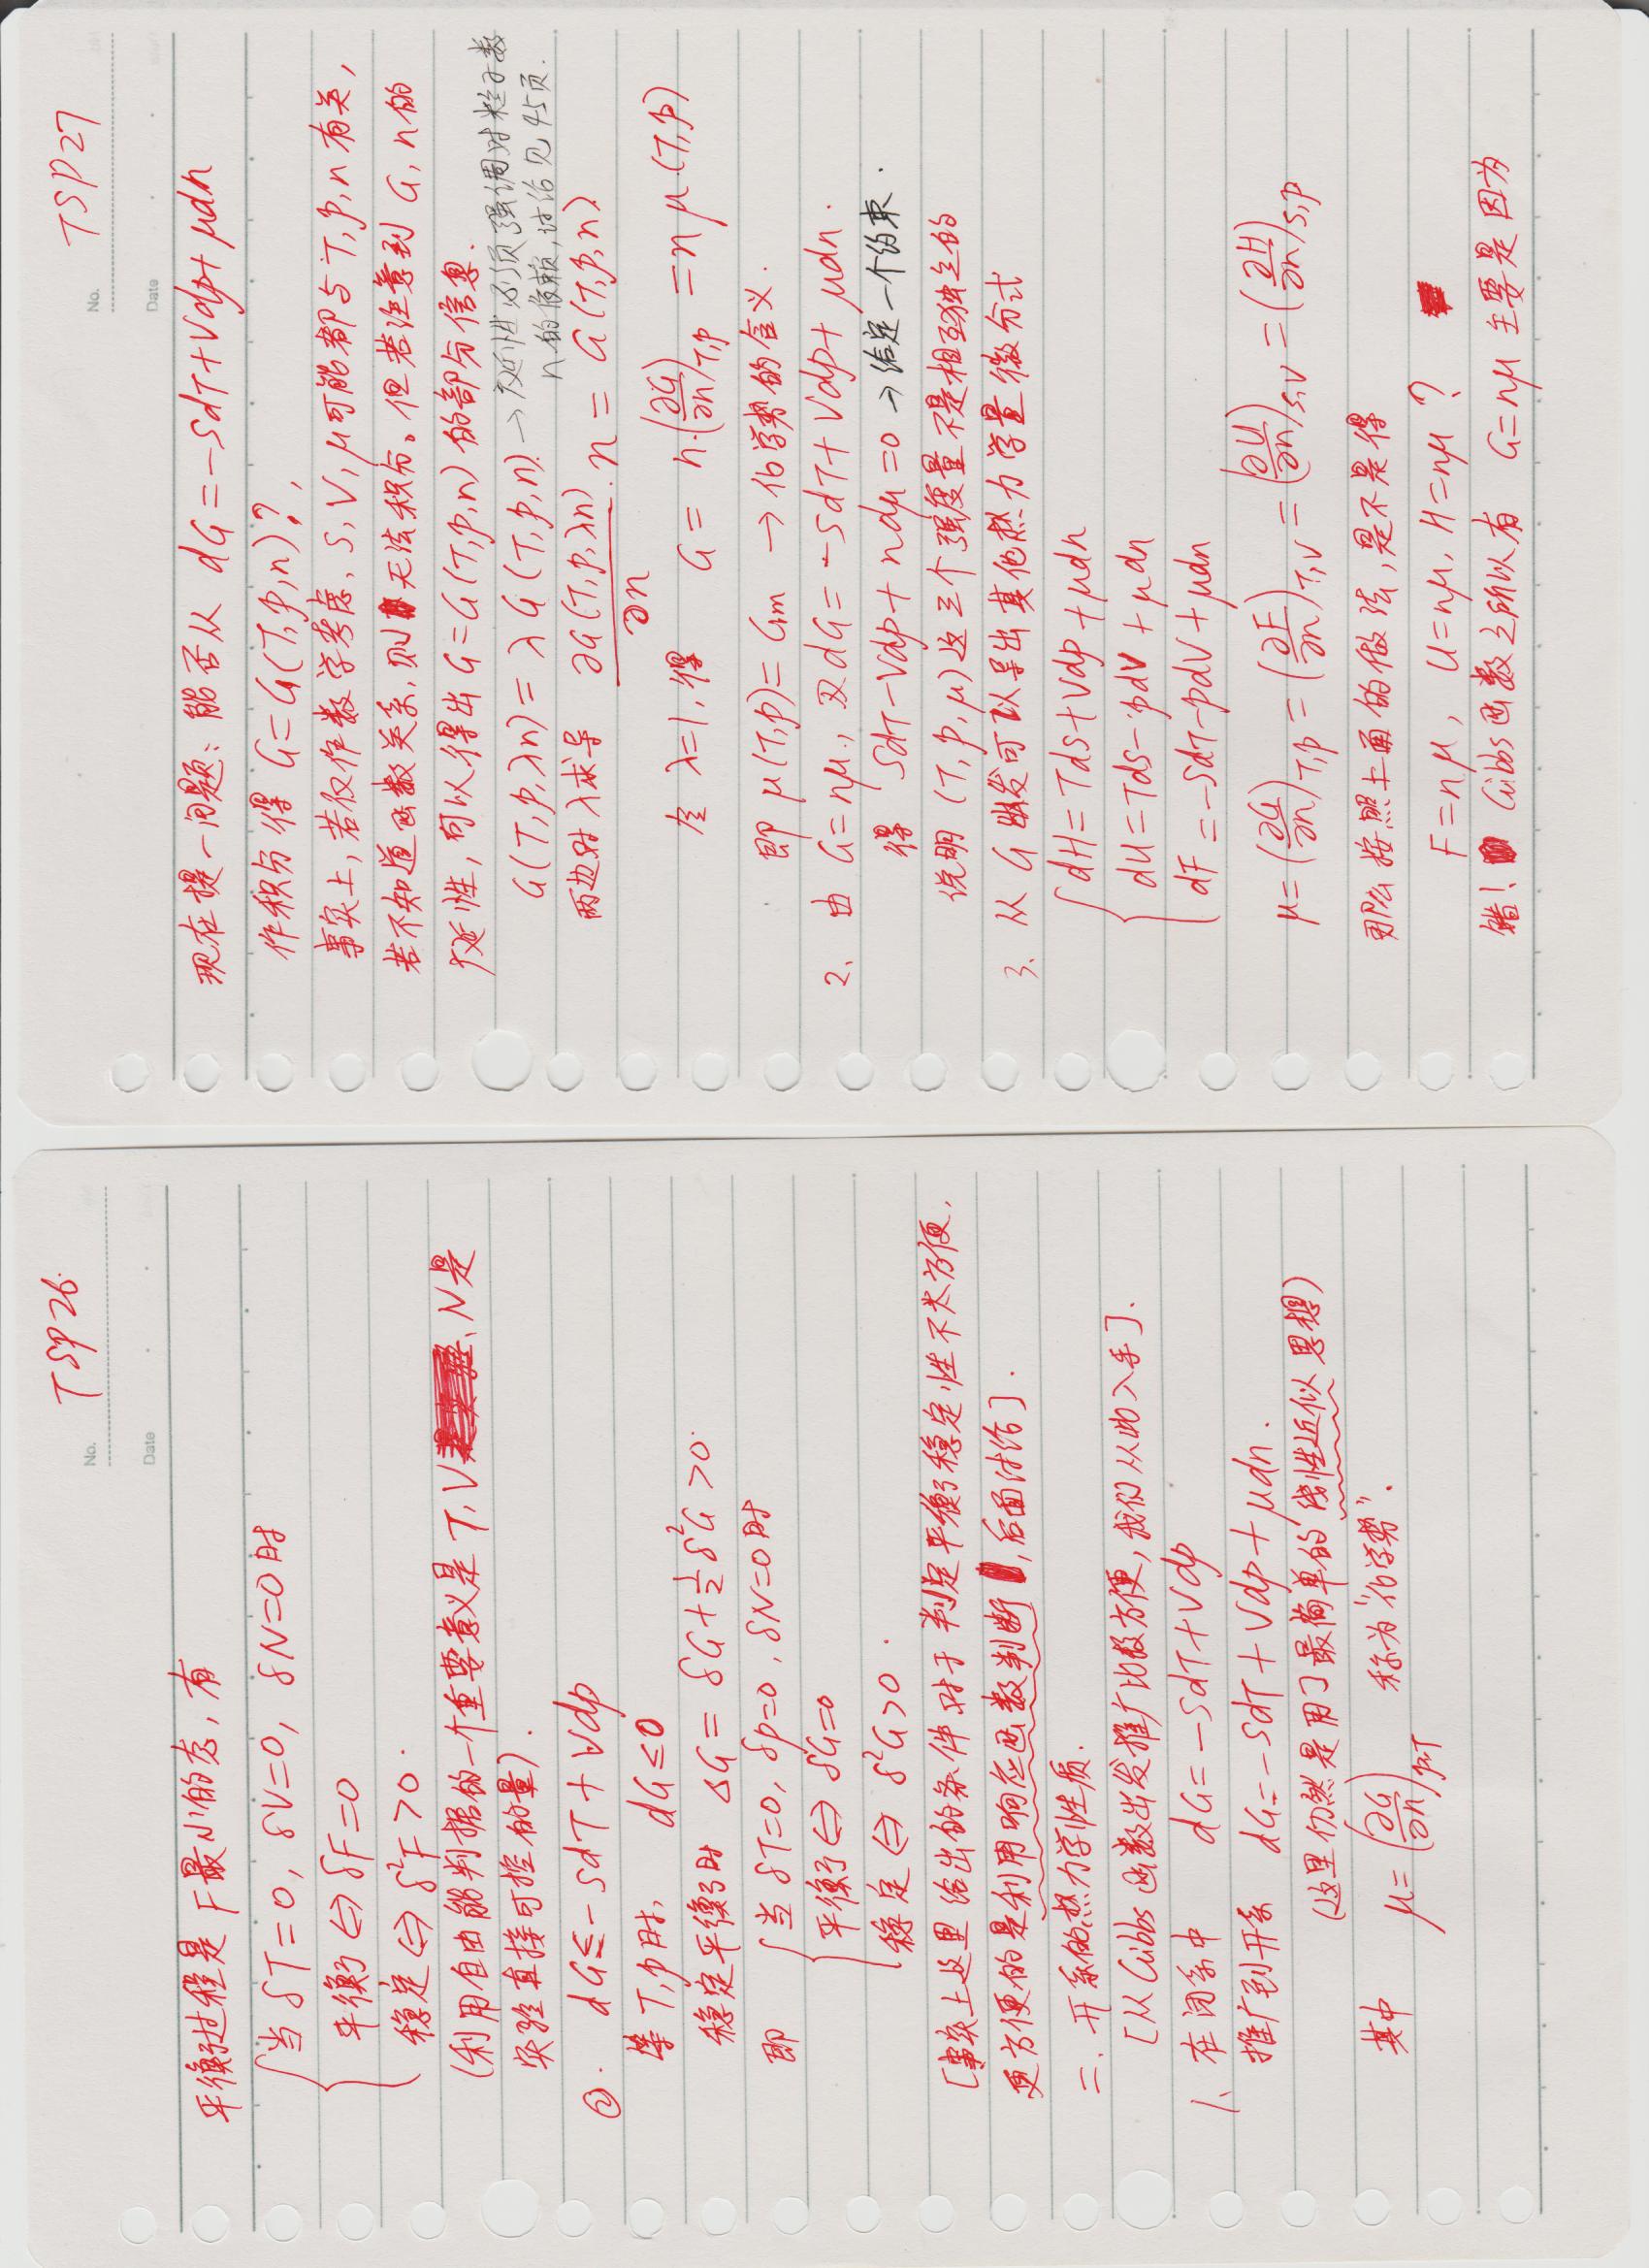 No. TSP26.
Date
平衡过程是F最小的态, 有
当 δT=0, δV=0, δN=0时
平衡 ⇔ δF=0
稳定 ⇔ δ²F>0.
(利用自由能判据的一个重要意义是 T, V、N是
实验直接可控的量).
②. dG≤-SdT+Vdp
等T,p时, dG≤0
稳定平衡时 ΔG= δG+½δ²G>0.
即 当 δT=0, δp=0, δN=0时
平衡 ⇔ δG=0
稳定 ⇔ δ²G>0.
[事实上这里给出的条件对于判定平衡稳定性不太方便,
更方便的是利用响应函数判断, 后面讨论].
二. 开系的热力学性质.
[从Gibbs函数出发推广比较方便, 我们从此入手].
1、在闭系中 dG=-SdT+Vdp
推广到开系 dG=-SdT+Vdp+μdn.
(这里仍然是用了最简单的线性近似思想)
其中 μ=(∂G/∂n)p,T 称为"化学势".
No. TSP27
Date
现在提一问题: 能否从 dG=-SdT+Vdp+μdn
作积分得 G=G(T,p,n)?,
事实上, 若仅作数学考虑, S, V, μ可能都与T,p,n有关,
若不知道函数关系, 则无法积分。但若注意到 G, n的
广延性, 可以得出G=G(T,p,n)的部分信息.
G(T,p,λn)=λG(T,p,n). → 广延性必须强调对粒子数
n的依赖, 讨论见45页.
两边对λ求导 ∂G(T,p,λn)/∂n · n = G(T,p,n)
令 λ=1, 得 G= n·(∂G/∂n)T,p =nμ(T,p)
即 μ(T,p)=Gm → 化学势的含义.
2、由 G=nμ, 及dG=-SdT+Vdp+μdn.
得 SdT-Vdp+ndμ=0 → 给定一个约束.
说明 (T,p,μ)这三个强度量不是相互独立的
3、从G出发可以导出其他热力学量微分式
dH=TdS+Vdp+μdn
dU=TdS-pdV+μdn
dF=-SdT-pdV+μdn
μ=(∂G/∂n)T,p=(∂F/∂n)T,V=(∂U/∂n)S,V=(∂H/∂n)S,p
那么按照上面的做法, 是不是得
F=nμ, U=nμ, H=nμ?
错! Gibbs函数之所以有 G=nμ 主要是因为